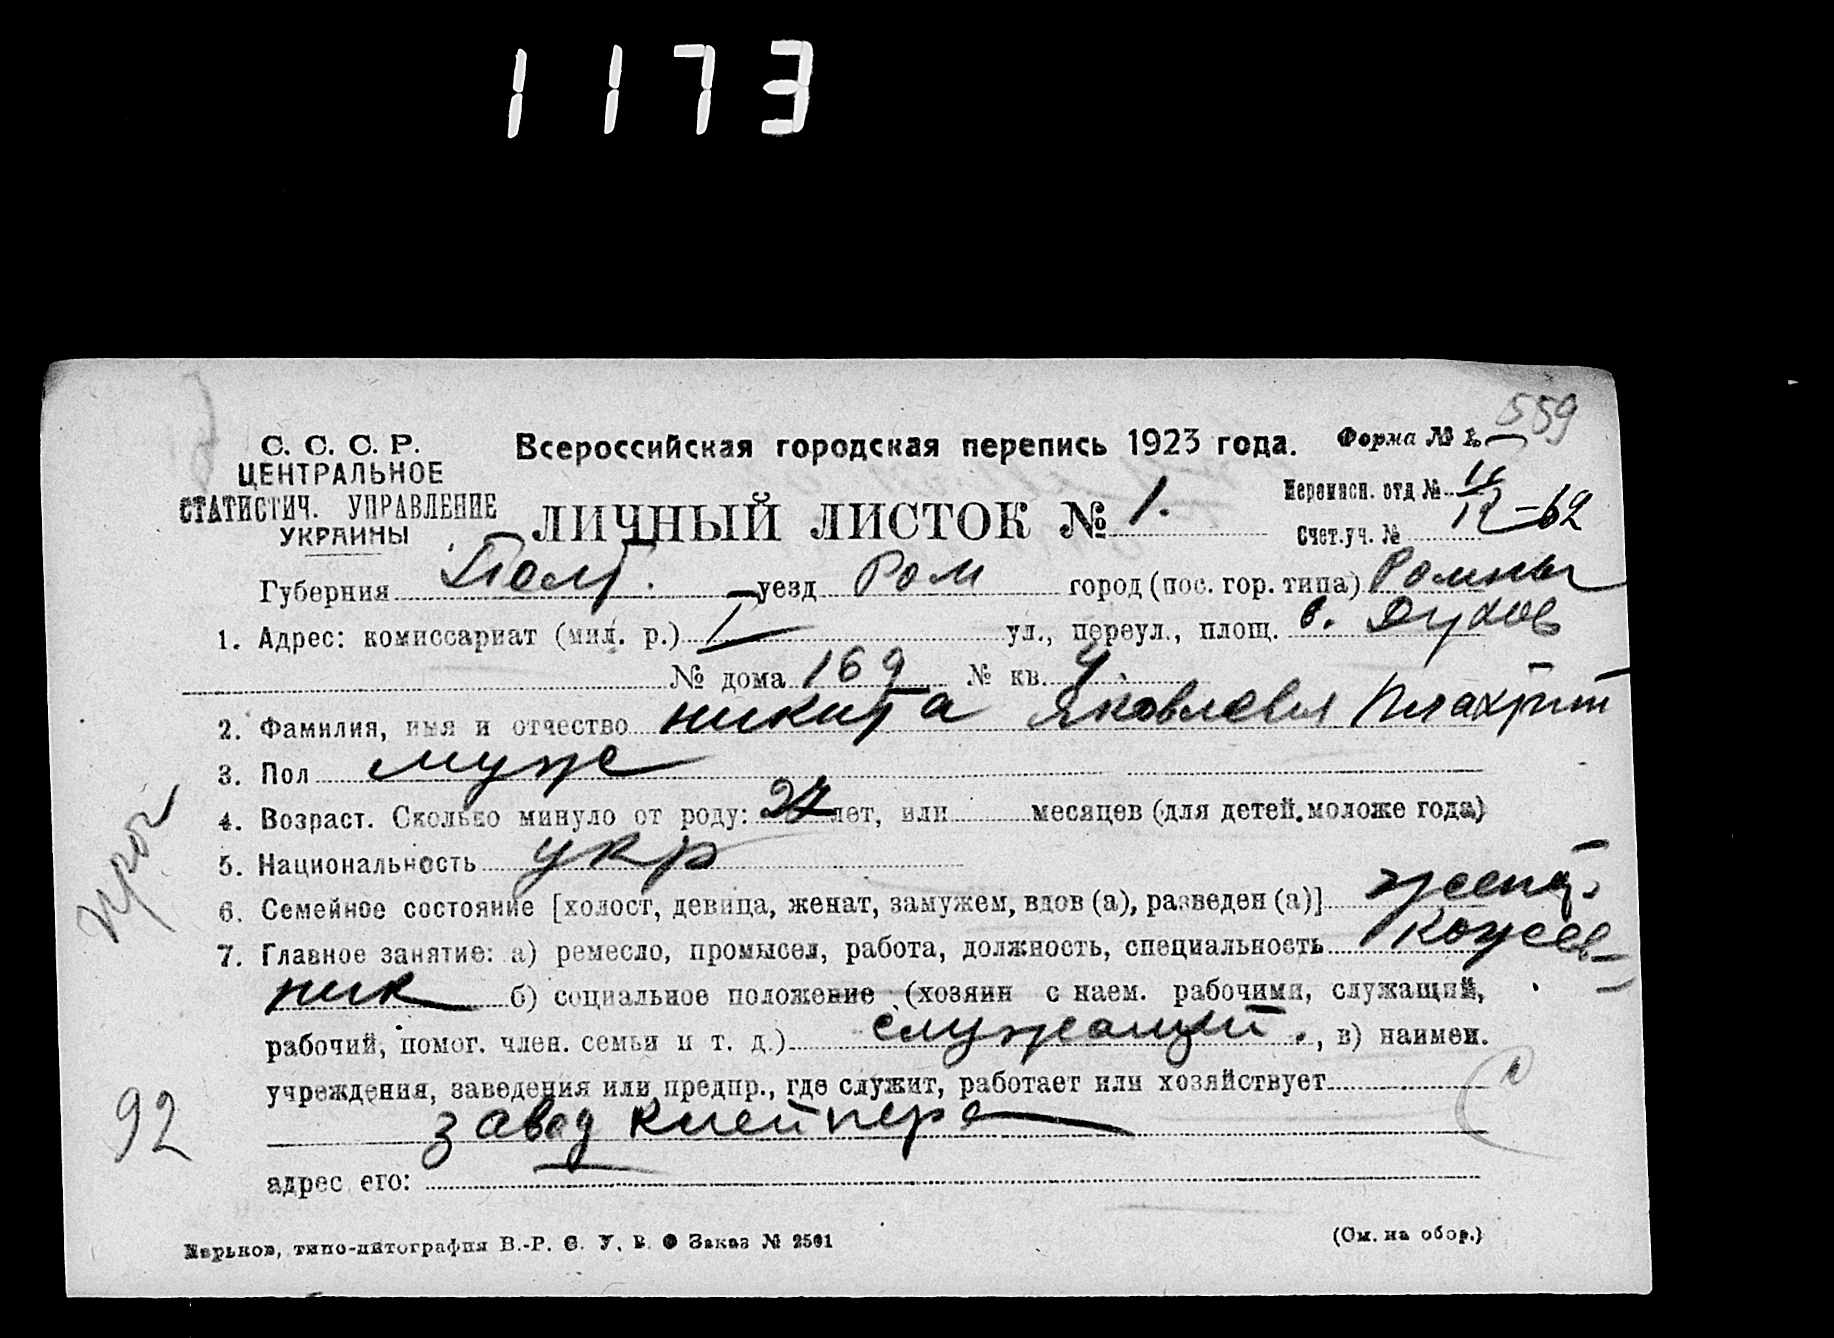 1173
559
С. С. С. Р.
ЦЕНТРАЛЬНОЕ
СТАТИСТИЧ. УПРАВЛЕНИЕ
УКРАИНЫ
Всероссийская городская перепись 1923 года.
Форма № 1.
ЛИЧНЫЙ ЛИСТОК № 1.
Переписн. отд №
Счет.уч. № 12-62
Губерния Полт. уезд Ром город (пос. гор. типа) Ромны
1. Адрес: комиссариат (мил. р.) I ул., переул., площ.
№ дома 169 № кв. 4.
2. Фамилия, имя и отчество Никита Яковлевич
3. Пол муж
4. Возраст. Сколько минуло от роду: 27 лет, или месяцев (для детей моложе года)
5. Национальность укр
6. Семейное состояние [холост, девица, женат, замужем, вдов (а), разведен (а)] женат
7. Главное занятие: а) ремесло, промысел, работа, должность, специальность кожев-
ник б) социальное положение (хозяин с наем. рабочими, служащий,
рабочий, помог. член. семьи и т. д.) служащий., в) наимен.
учреждения, заведения или предпр., где служит, работает или хозяйствует
завод Клейнера
адрес его:
92
Харьков, типо-литография В.-Р. С. У. В. О Заказ № 2501
(См. на обор.)